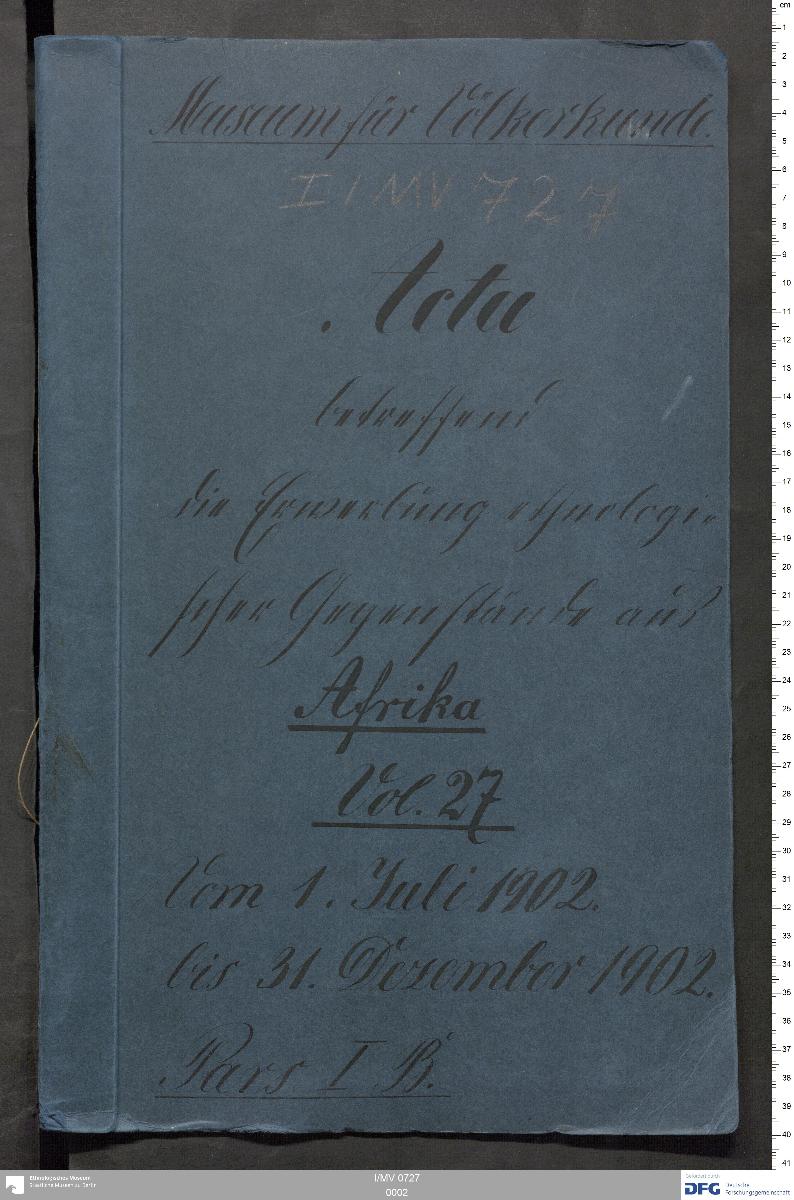 Museum für Völkerkunde.
I/MV 727
Acta
betreffend
die Erwerbung ethnologi-
scher Gegenstände aus
Afrika
Vol. 27
Vom 1. Juli 1902.
bis 31. Dezember 1902.
Pars I B.
cm
1
2
3
4
5
6
7
8
9
10
11
12
13
14
15
16
17
18
19
20
21
22
23
24
25
26
27
28
29
30
31
32
33
34
35
36
37
38
39
40
41
Ethnologisches Museum
Staatliche Museen zu Berlin
I/MV 0727
0002
Gefördert durch
DFG Deutsche
Forschungsgemeinschaft